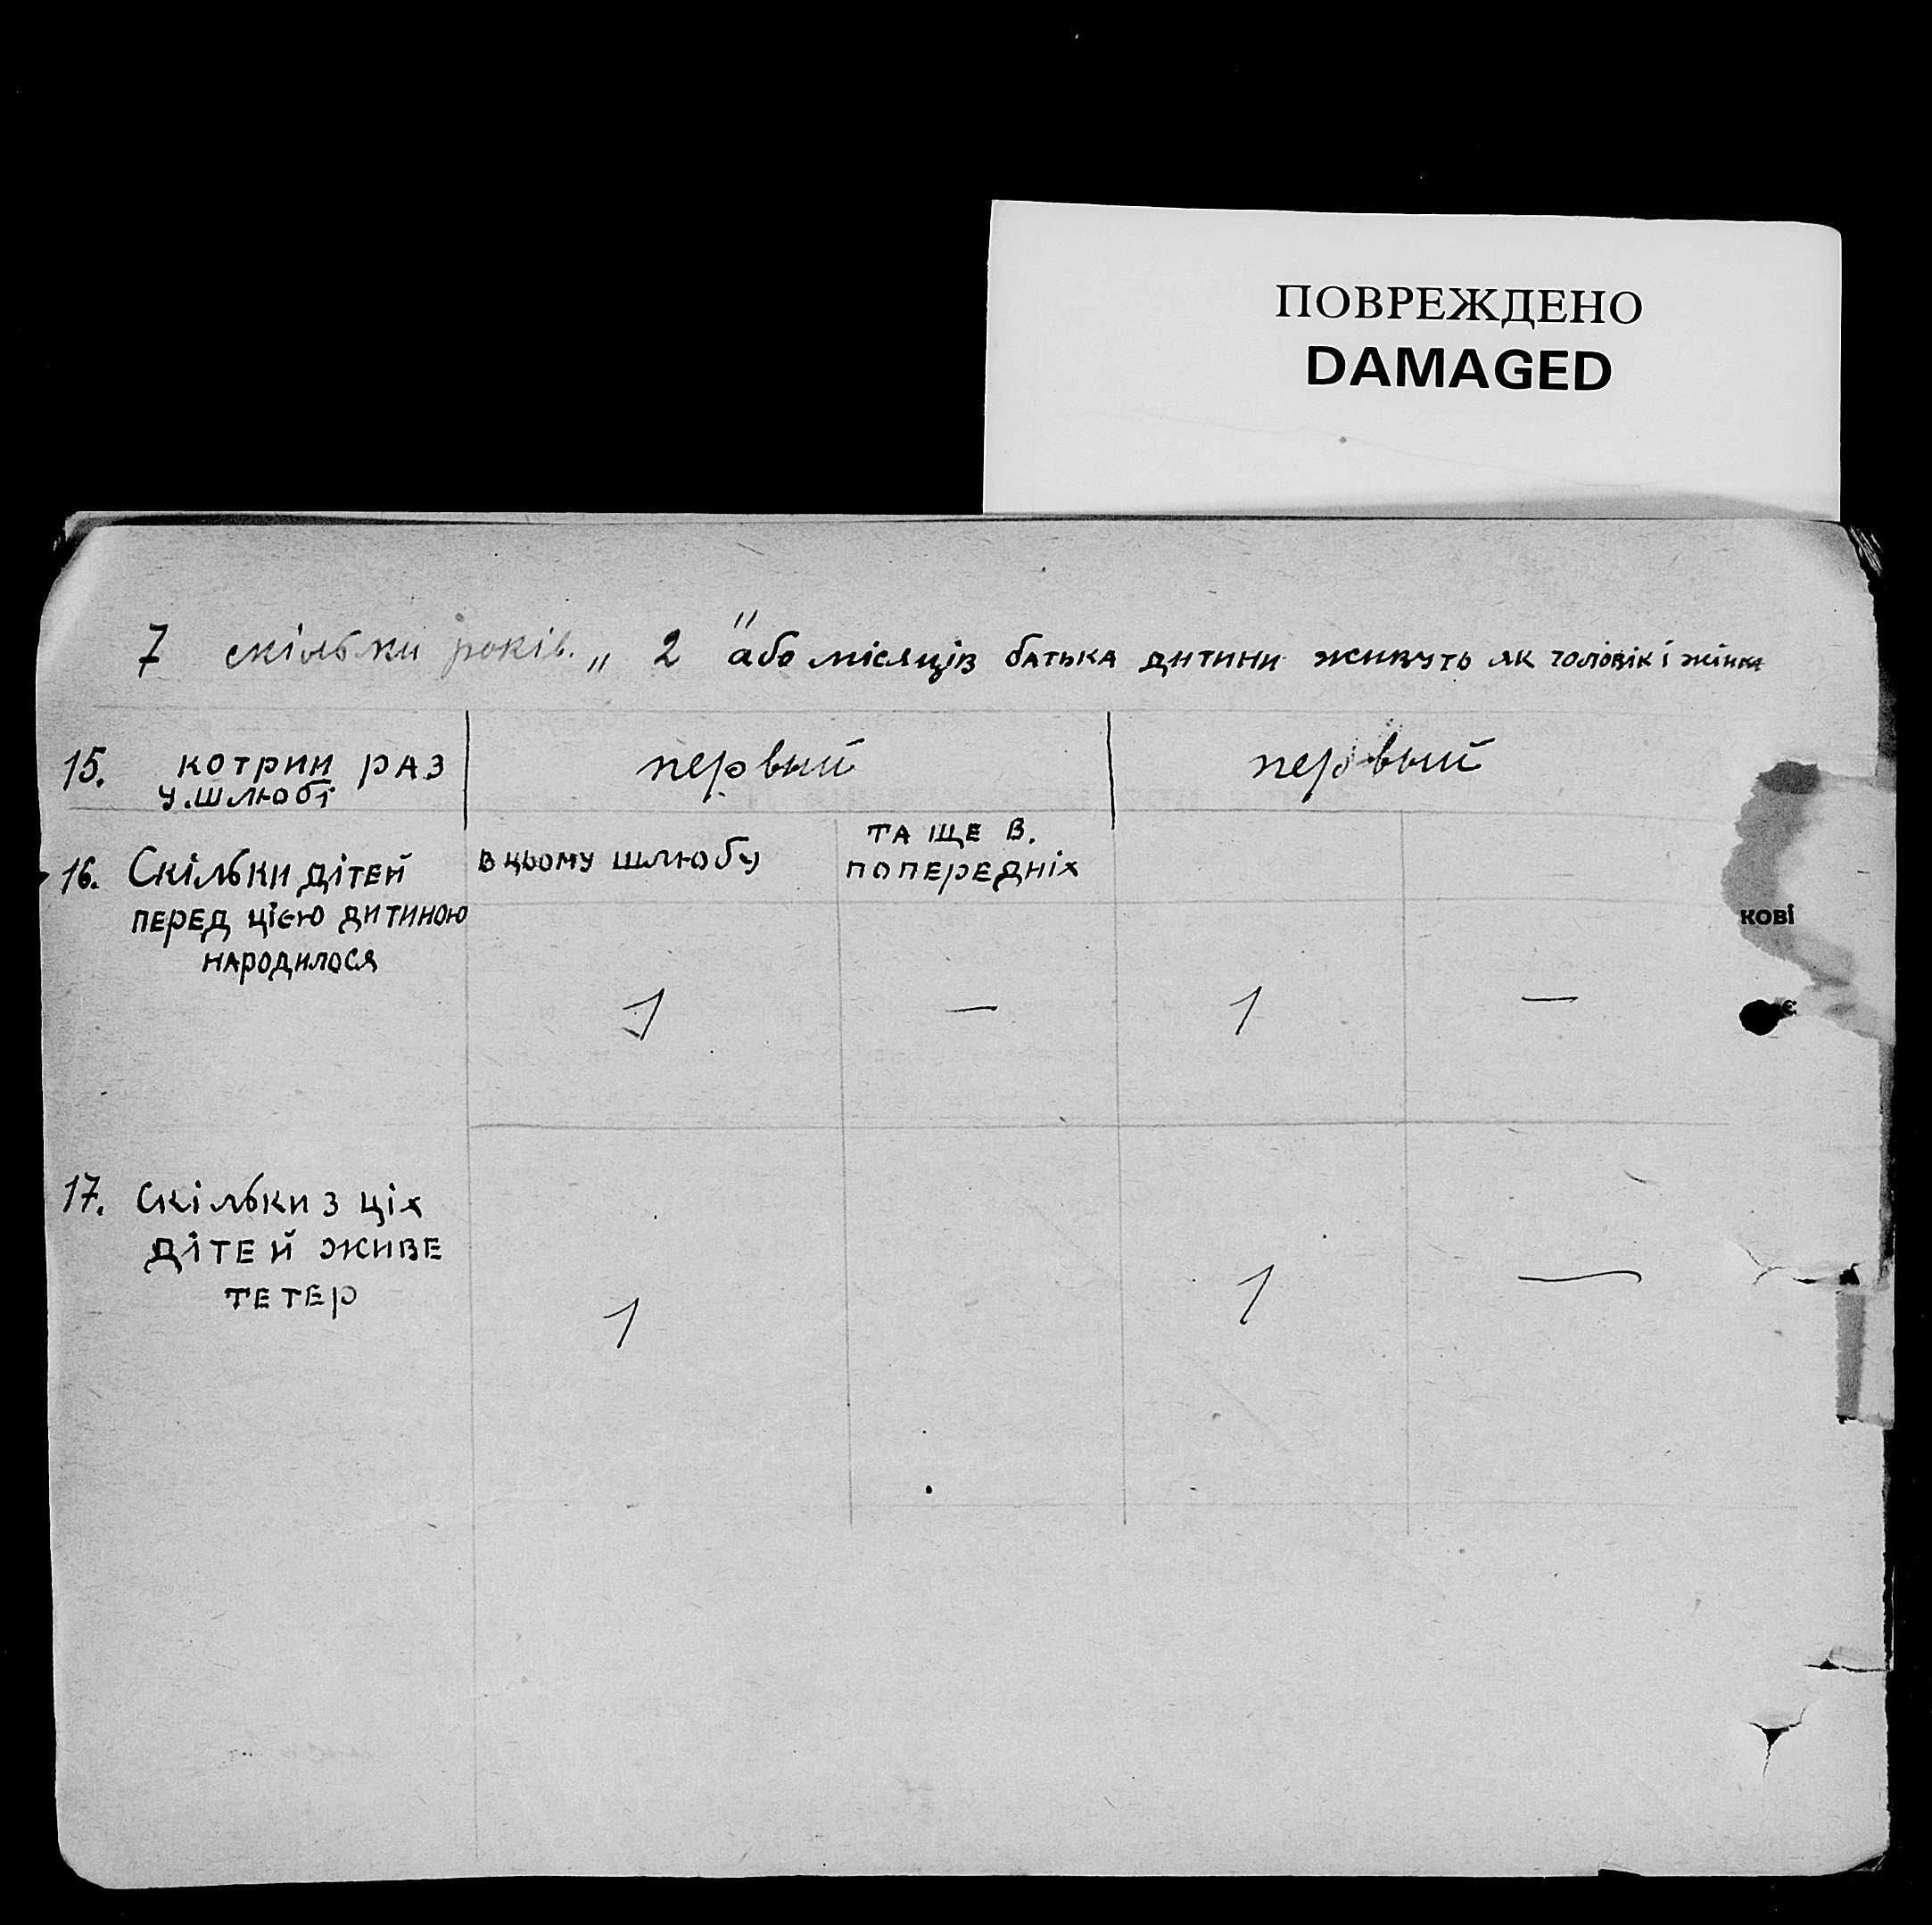 ПОВРЕЖДЕНО
DAMAGED
7 скільки років. „ 2 " або місяців батька дитини живуть як чоловік і жінка
15. котрии раз первый первый
у.шлюбі
та ще в.
16. Скільки дітей в цьому шлюбу попередніх
перед цією дитиною кові
народилося
1 — 1 — є
17. скільки з ціх
дітей живе
тетер 1 1 —